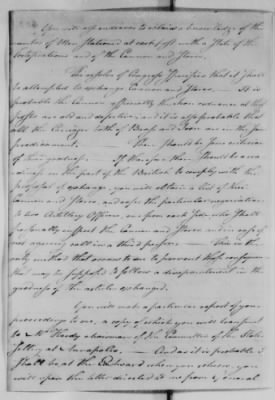 You will also endeavour to obtain a knowledge of the
number of Men Stationed at each post with a State of the
fortifications and of the Cannon and Stores.
The resolve of Congress Specifies that it should
be attempted to exchange Cannon and Stores — It is
probable the Cannon especially the Iron ordnance at these
posts are old and defective, and it is also probable that
all the Carriages both of Brass and Iron are in the same
predicament. — There should be some criterion
of their goodness. If therefore there should be a
on the part of the British to comply with the
proposal of exchange you will obtain a list of their
Cannon and Stores, and refer the particular negociation
to two Artillery Officers, one from each side who shall
personally inspect the Cannon and Stores and in case of
not agreeing call in a third person — This is the
only method that occurs to me to prevent that
that may be supposed to follow a disappointment in the
goodness of the articles exchanged.
You will make a particular report of your
proceedings to me, a copy of which you will transmit
to Mr Hardy chairman of the Committee of the States
Sitting at Annapolis. — And as it is probable I
shall be at the Eastward when you return, you
will open the letter directed to me from General